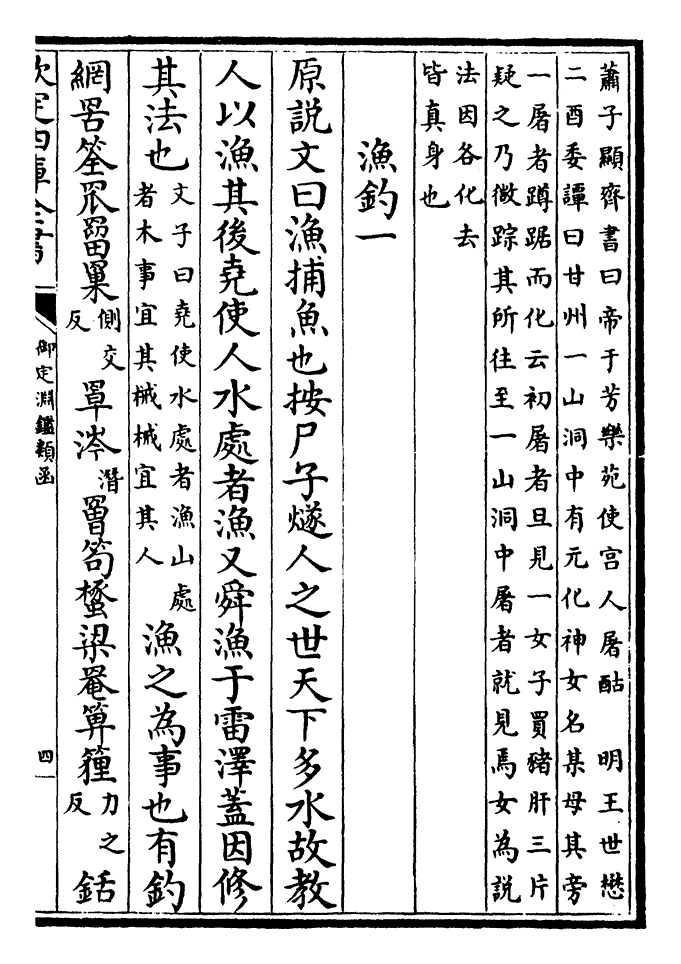 蕭子顯齊書曰帝于芳樂苑使宫人屠酤　明王世懋
二酉委譚曰甘州一山洞中有元化神女名某母其旁
一屠者蹲踞而化云初屠者旦見一女子買豬肝三片
疑之乃微踪其所往至一山洞中屠者就見焉女為説
法因各化去
皆真身也
漁釣一
原説文曰漁捕魚也按尸子燧人之世天下多水故教
人以漁其後堯使人水處者漁又舜漁于雷澤蓋因修
其法也文子曰堯使水處者漁山處者木事宜其械械宜其人漁之為事也有釣
網罟筌罛罶罺側交反罩涔潛罾笱𥴦梁罨箄䉶力之反銛
欽定四庫全書
御定淵鑑類函
四